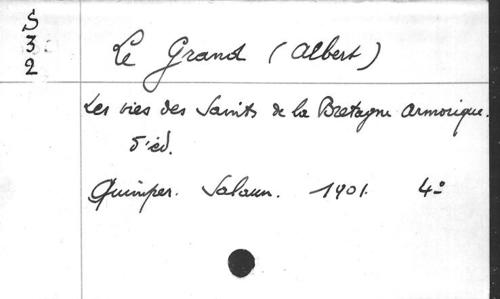 S
3
2
Le Grand (Albert)
Les vies des Saints de la Bretagne Armorique.
5'éd.
Quimper. Salaun. 1901. 4º